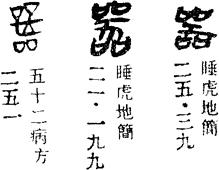 器
睡虎地簡
二五·三九
器
睡虎地簡
二一·一九九
器
五十二病方
二五一